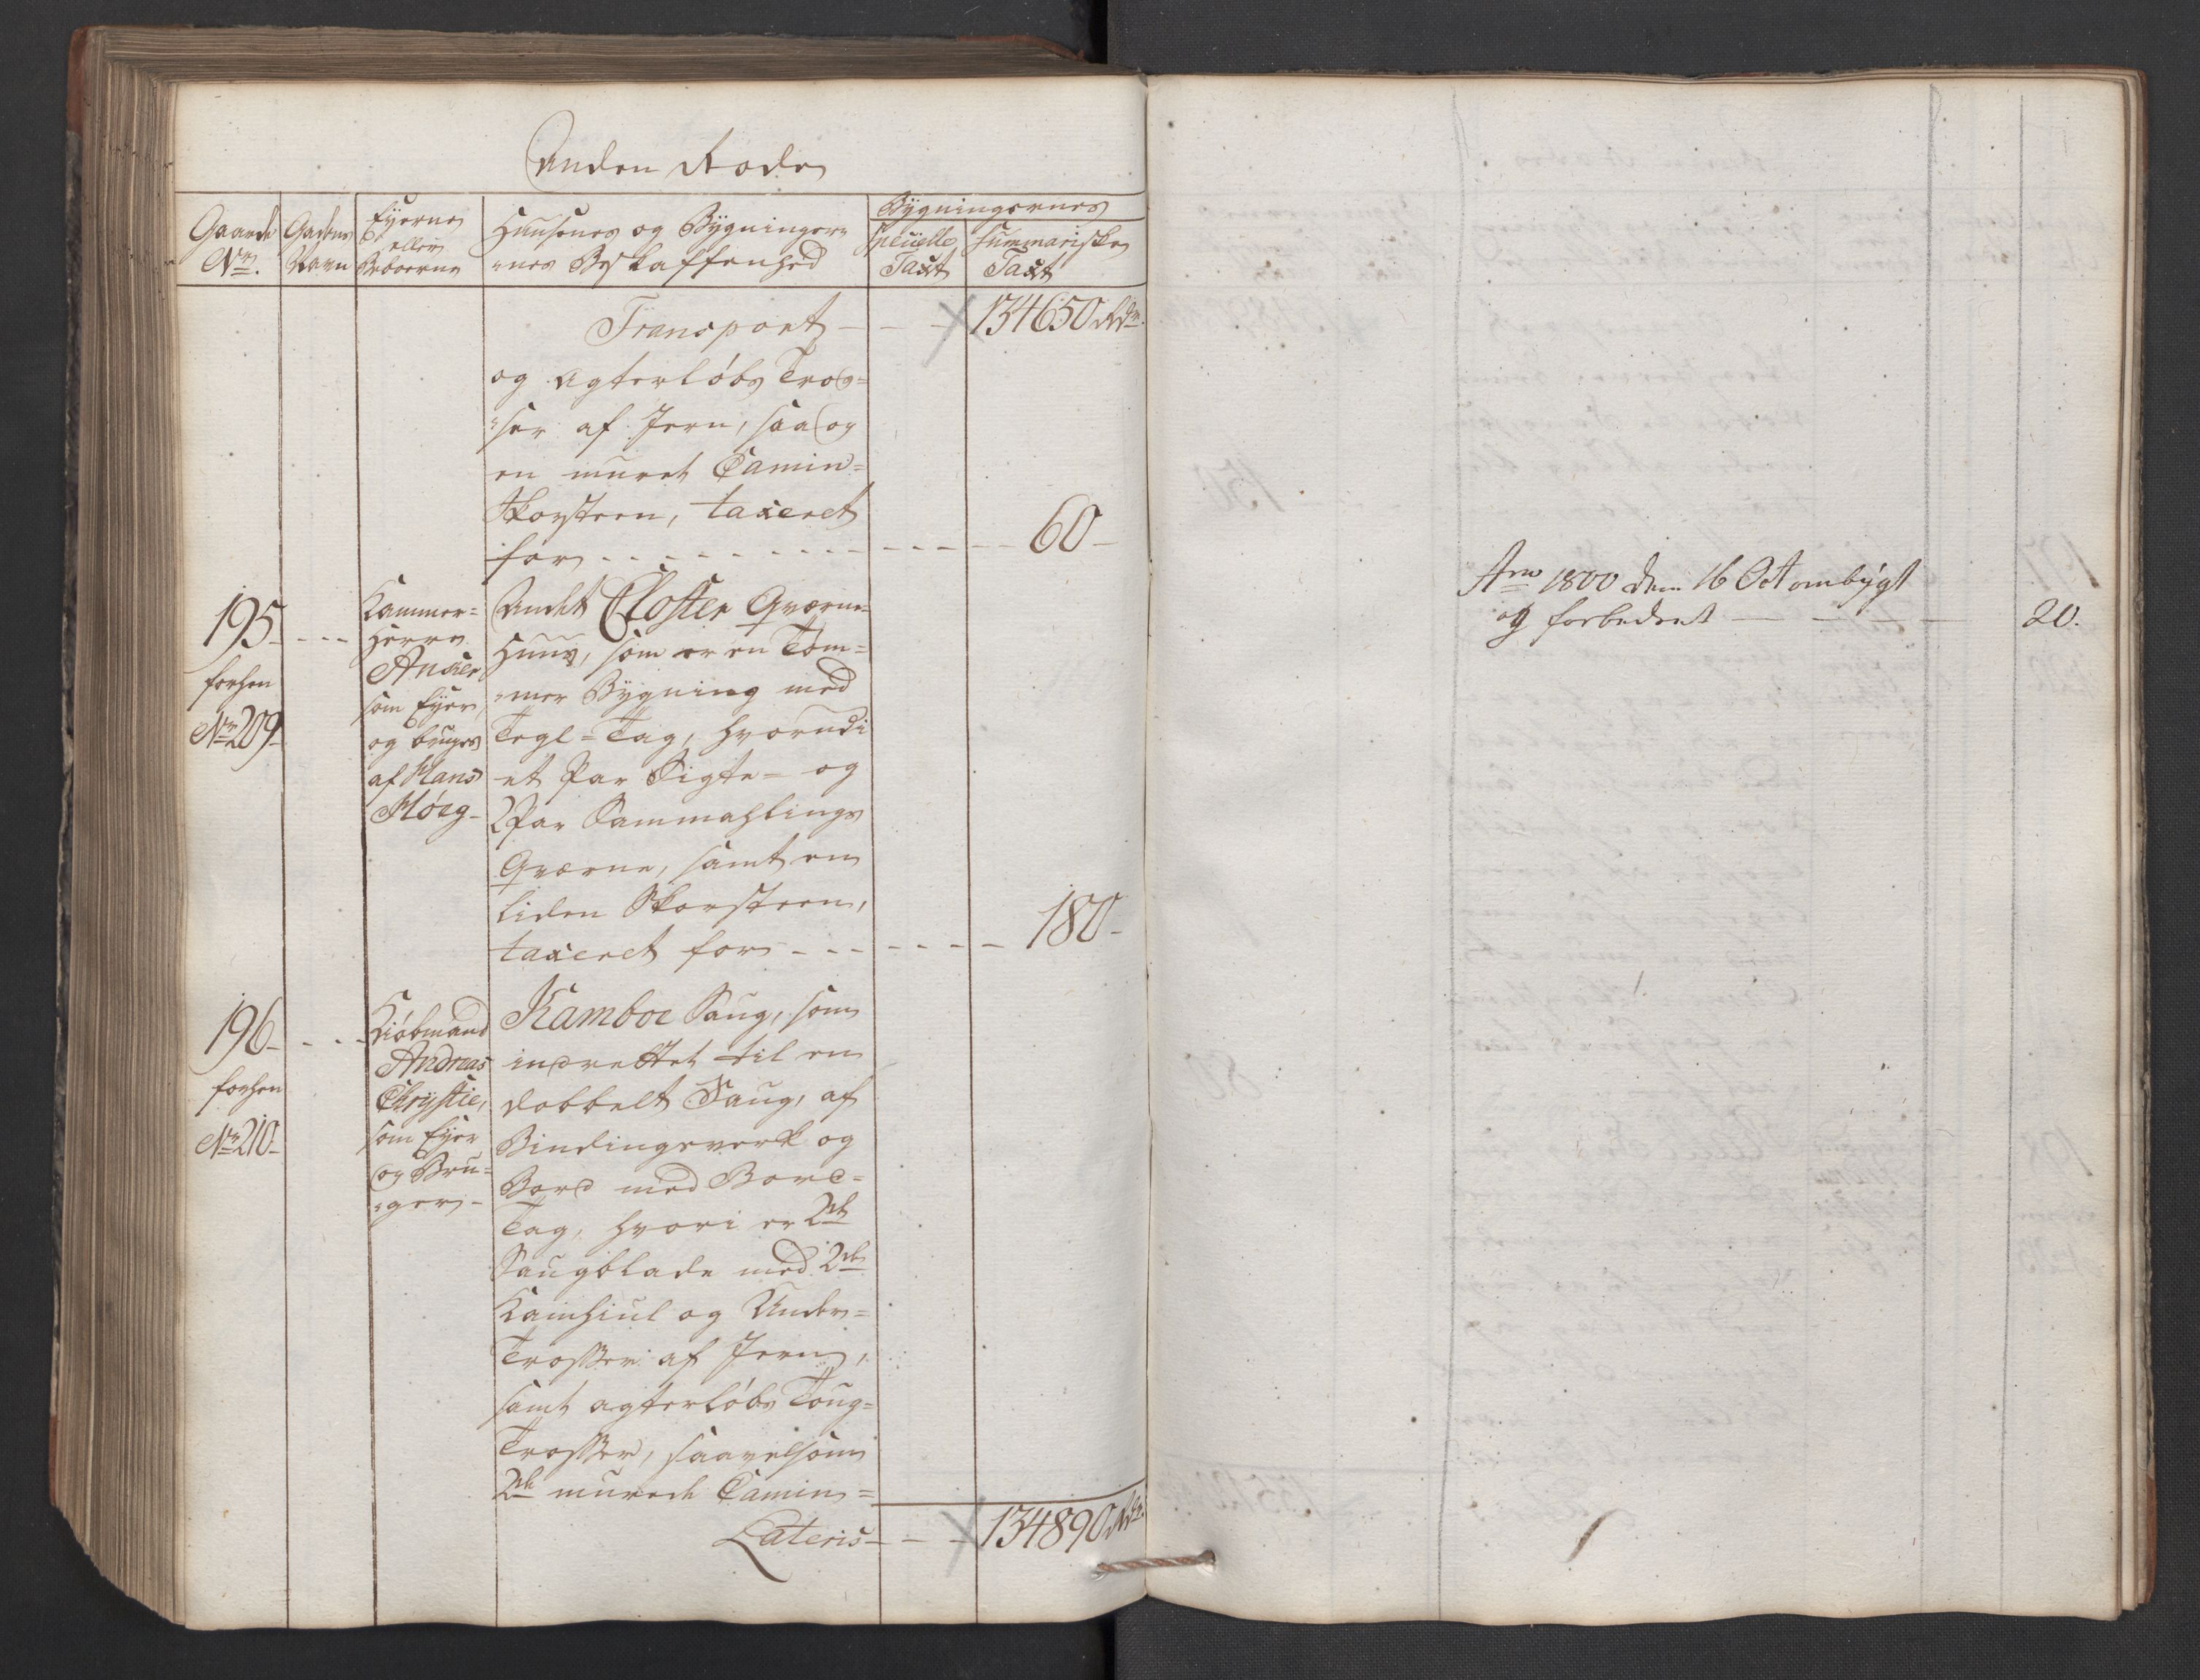 Anden Rode
Gaarde Nr.
Gadens Navn
Eyerne eller Beboerne
Huusenes og Bygninger=
=nes Beskaffenhed
Bygningernes
Specielle Taxt
Summariske Taxt
Transport - - - 134650 Rdr.
og agterløbs Tros=
=ser af Jern, saa og
en muret Camin=
Skorsteen, taxeret
for - - - - - - - - - 60 -
195 - - - -
forhen
No 209 -
Kammer=
Herre
Anker
som Eyer,
og bruges
af Hans
Høeg -
Andet Closter Qværne=
Huus, som er en Tøm=
=mer Bygning med
Tegl=Tag, hvorudi
et Par Sigte= og
2 Par Sammahlings
Qværne, samt en
liden Skorsteen,
taxeret for - - - - - - - 180 -
196 - - - -
forhen
No 210 -
Kiøbmand
Andreas
Chrystie,
som Eyer
og Bru=
=ger -
Kamboe Saug, som
indrettet til en
dobbelt Saug, af
Bindingsverk og
Bord med Bord=
Tag, hvori er 2de
Saugblade med 2de
Kamhiul og Under=
Trosser af Jern,
samt agterløbs Toug=
Trosser, saavelsom
2de murede Camin=
Lateris - - - 134890 Rdr.
Ano 1800 dem 16 Oct ombygt
og forbedret - - - - 20.